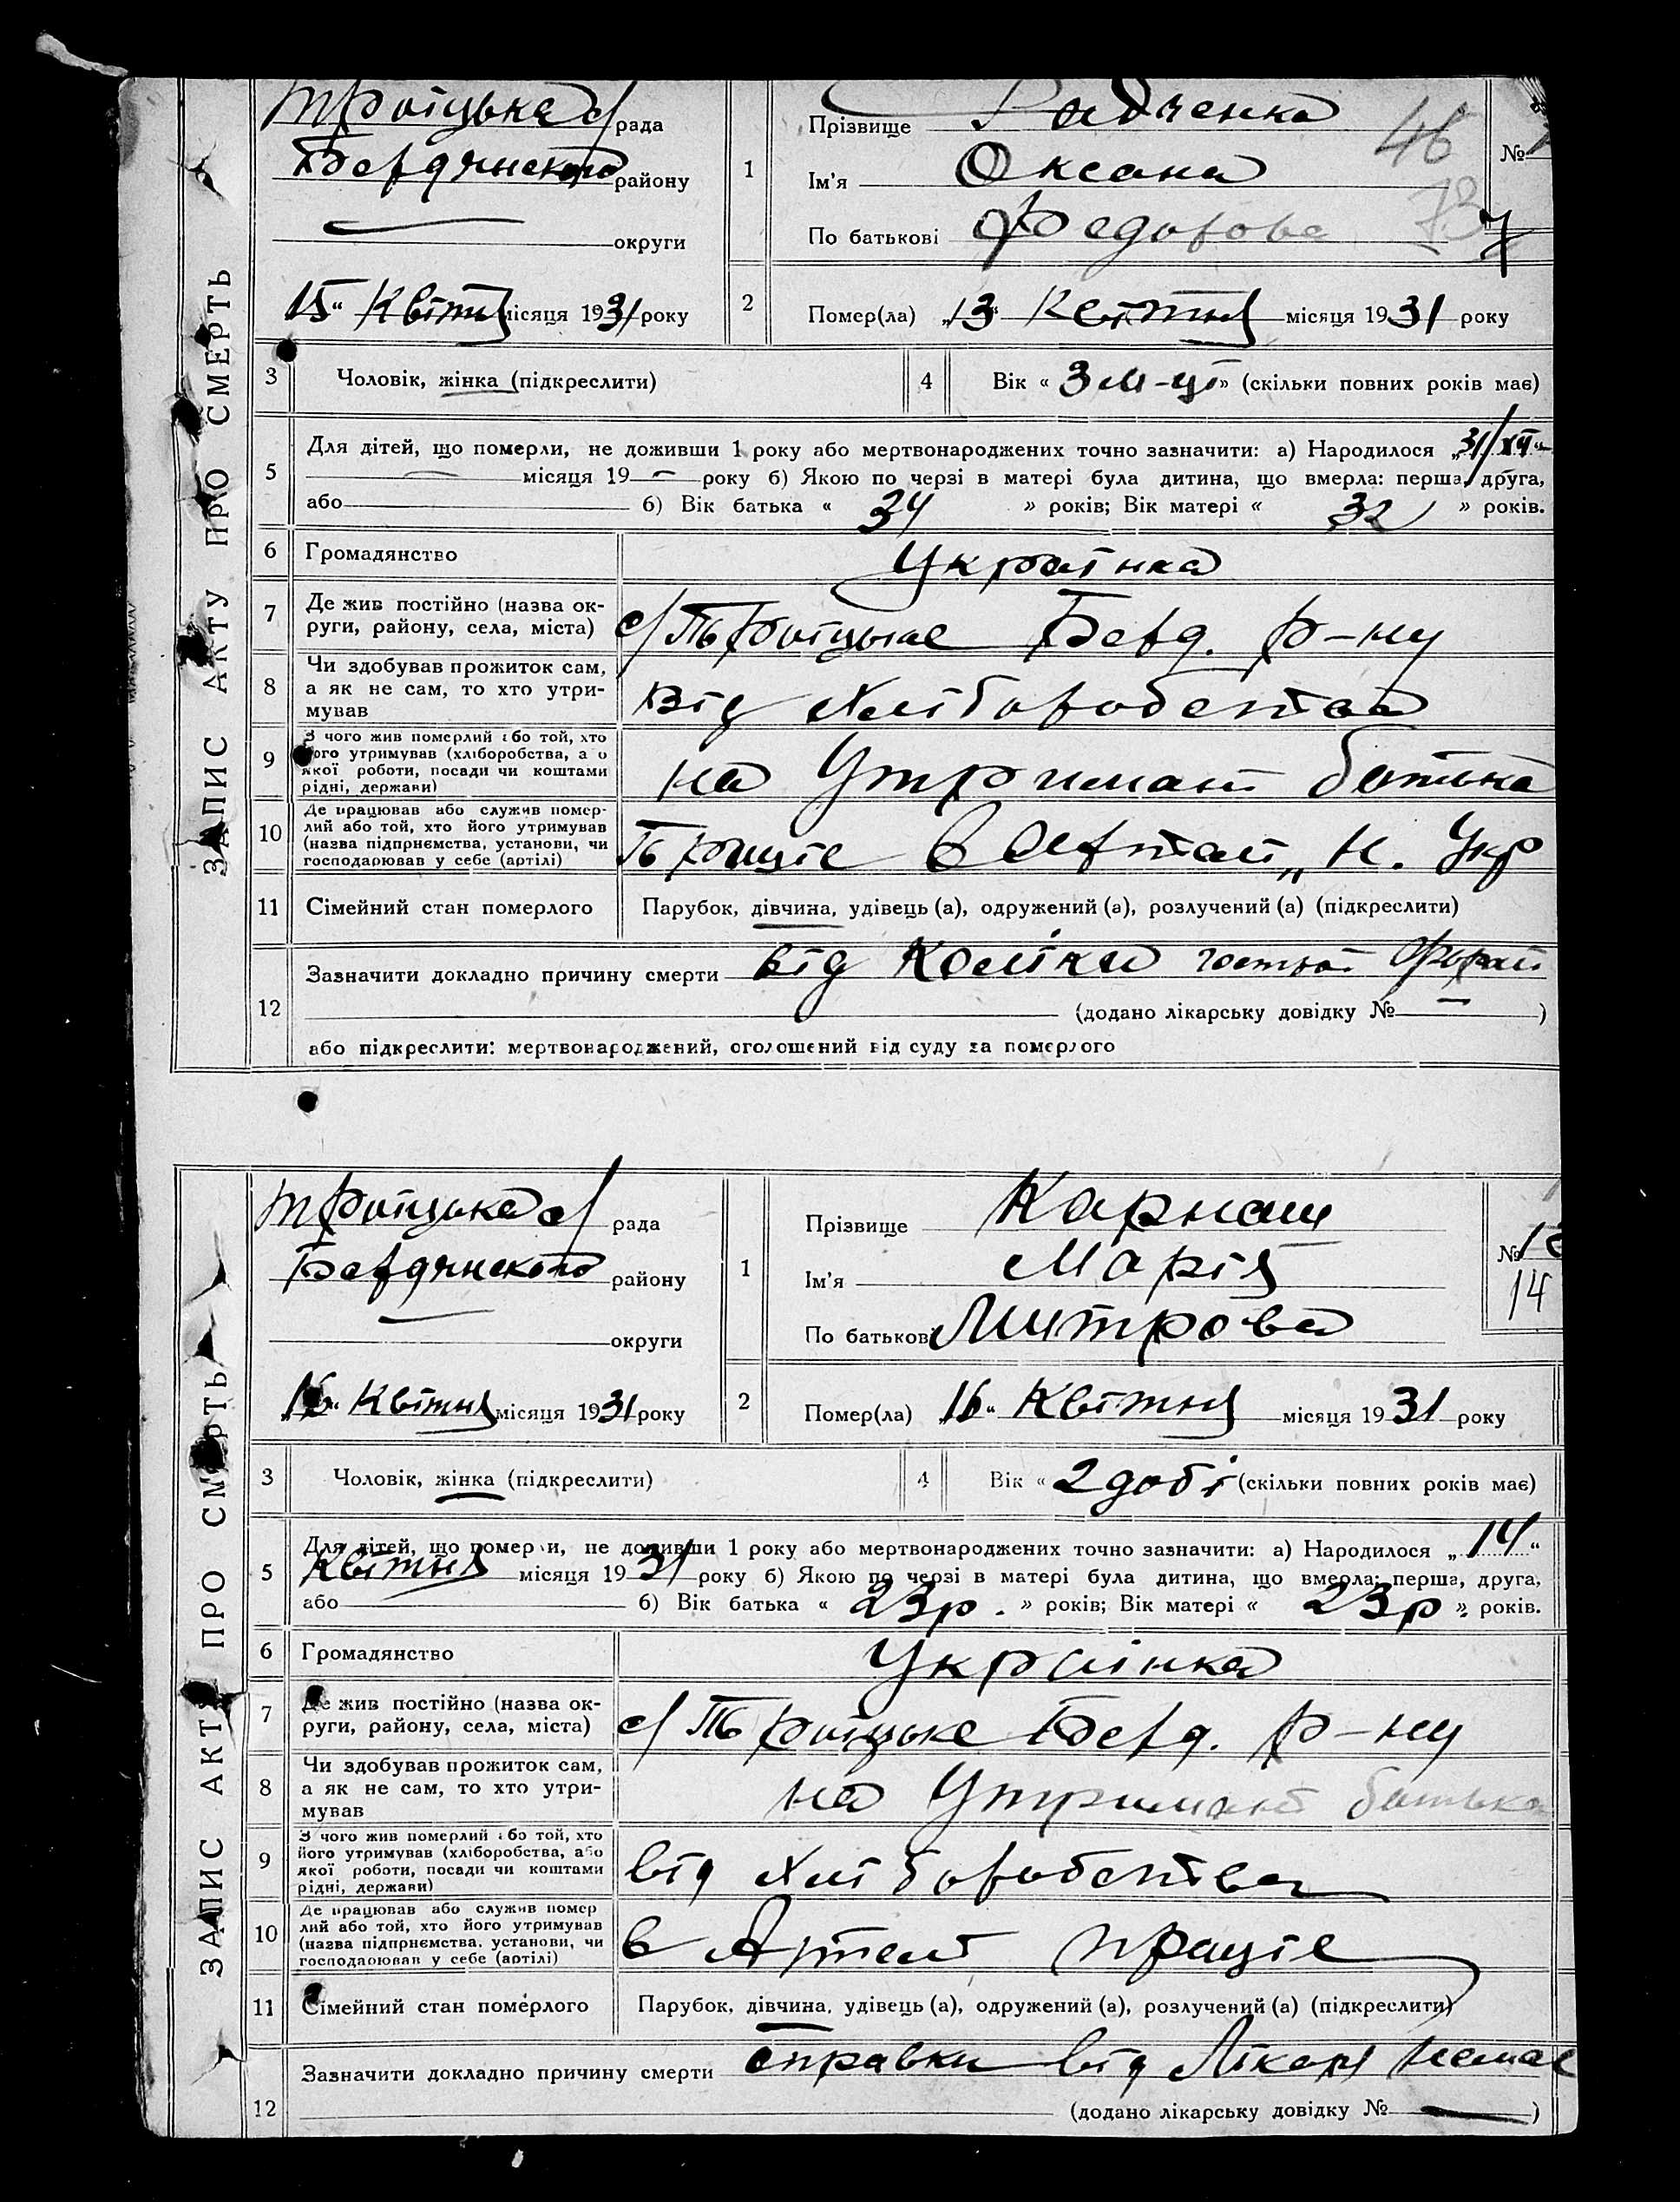 ЗАПИС АКТУ ПРО СМЕРТЬ
Троїцька с/рада
Бердянського району
округи
„15“ Квітня місяця 1931 року
1
Прізвище Радченка
Ім'я Оксана
По батькові Федорова
46
73
№
7
2
Помер(ла) „13“ Квітня місяця 1931 року
3 Чоловік, жінка (підкреслити)
4 Вік « 3 м-ці » (скільки повних років має)
5 Для дітей, що померли, не доживши 1 року або мертвонароджених точно зазначити: а) Народилося „31/XII“
місяця 19 — року б) Якою по черзі в матері була дитина, що вмерла: перша, друга,
або б) Вік батька « 34 » років; Вік матері « 32 » років.
6 Громадянство Українка
7 Де жив постійно (назва ок-
руги, району, села, міста) с/Троїцьке Берд. р-ну
8 Чи здобував прожиток сам,
а як не сам, то хто утри-
мував
від Хліборобства
9 З чого жив померлий або той, хто
його утримував (хліборобства, або
якої роботи, посади чи коштами
рідні, держави)
на Утримані батька
10 Де працював або служив помер-
лий або той, хто його утримував
(назва підприємства, установи, чи
господарював у себе (артілі)
Працює в Артелі „Н. Укр
11 Сімейний стан померлого Парубок, дівчина, удівець (а), одружений (а), розлучений (а) (підкреслити)
12 Зазначити докладно причину смерти від Коліки гострої форми
(додано лікарську довідку № — )
або підкреслити: мертвонароджений, оголошений від суду за померлого
ЗАПИС АКТУ ПРО СМЕРТЬ
Троїцька с/ рада
Бердянського району
округи
„16“ Квітня місяця 1931 року
1
Прізвище Карнаш
Ім'я Марія
По батькові Митрова
№
14
2
Помер(ла) „16“ Квітня місяця 1931 року
3 Чоловік, жінка (підкреслити)
4 Вік « 2 добі (скільки повних років має)
5 Для дітей, що померли, не доживши 1 року або мертвонароджених точно зазначити: а) Народилося „14“
Квітня місяця 1931 року б) Якою по черзі в матері була дитина, що вмерла: перша, друга,
або б) Вік батька « 23 р. » років; Вік матері « 23 р » років.
6 Громадянство Українка
7 Де жив постійно (назва ок-
руги, району, села, міста) с/ Троїцьке Берд. р-ну
8 Чи здобував прожиток сам,
а як не сам, то хто утри-
мував
на Утримані батька
9 З чого жив померлий або той, хто
його утримував (хліборобства, або
якої роботи, посади чи коштами
рідні, держави)
від Хліборобства
10 Де працював або служив помер
лий або той, хто його утримував
(назва підприємства, установи, чи
господарював у себе (артілі)
в Артелі працює
11 Сімейний стан померлого Парубок, дівчина, удівець (а), одружений (а), розлучений (а) (підкреслити)
12 Зазначити докладно причину смерти справки від Лікаря немає
(додано лікарську довідку № — )